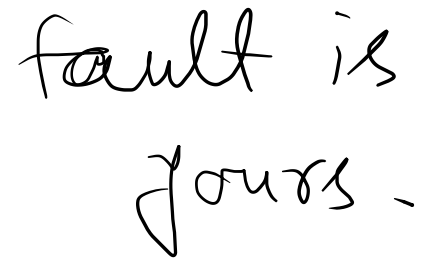 fault is
yours.